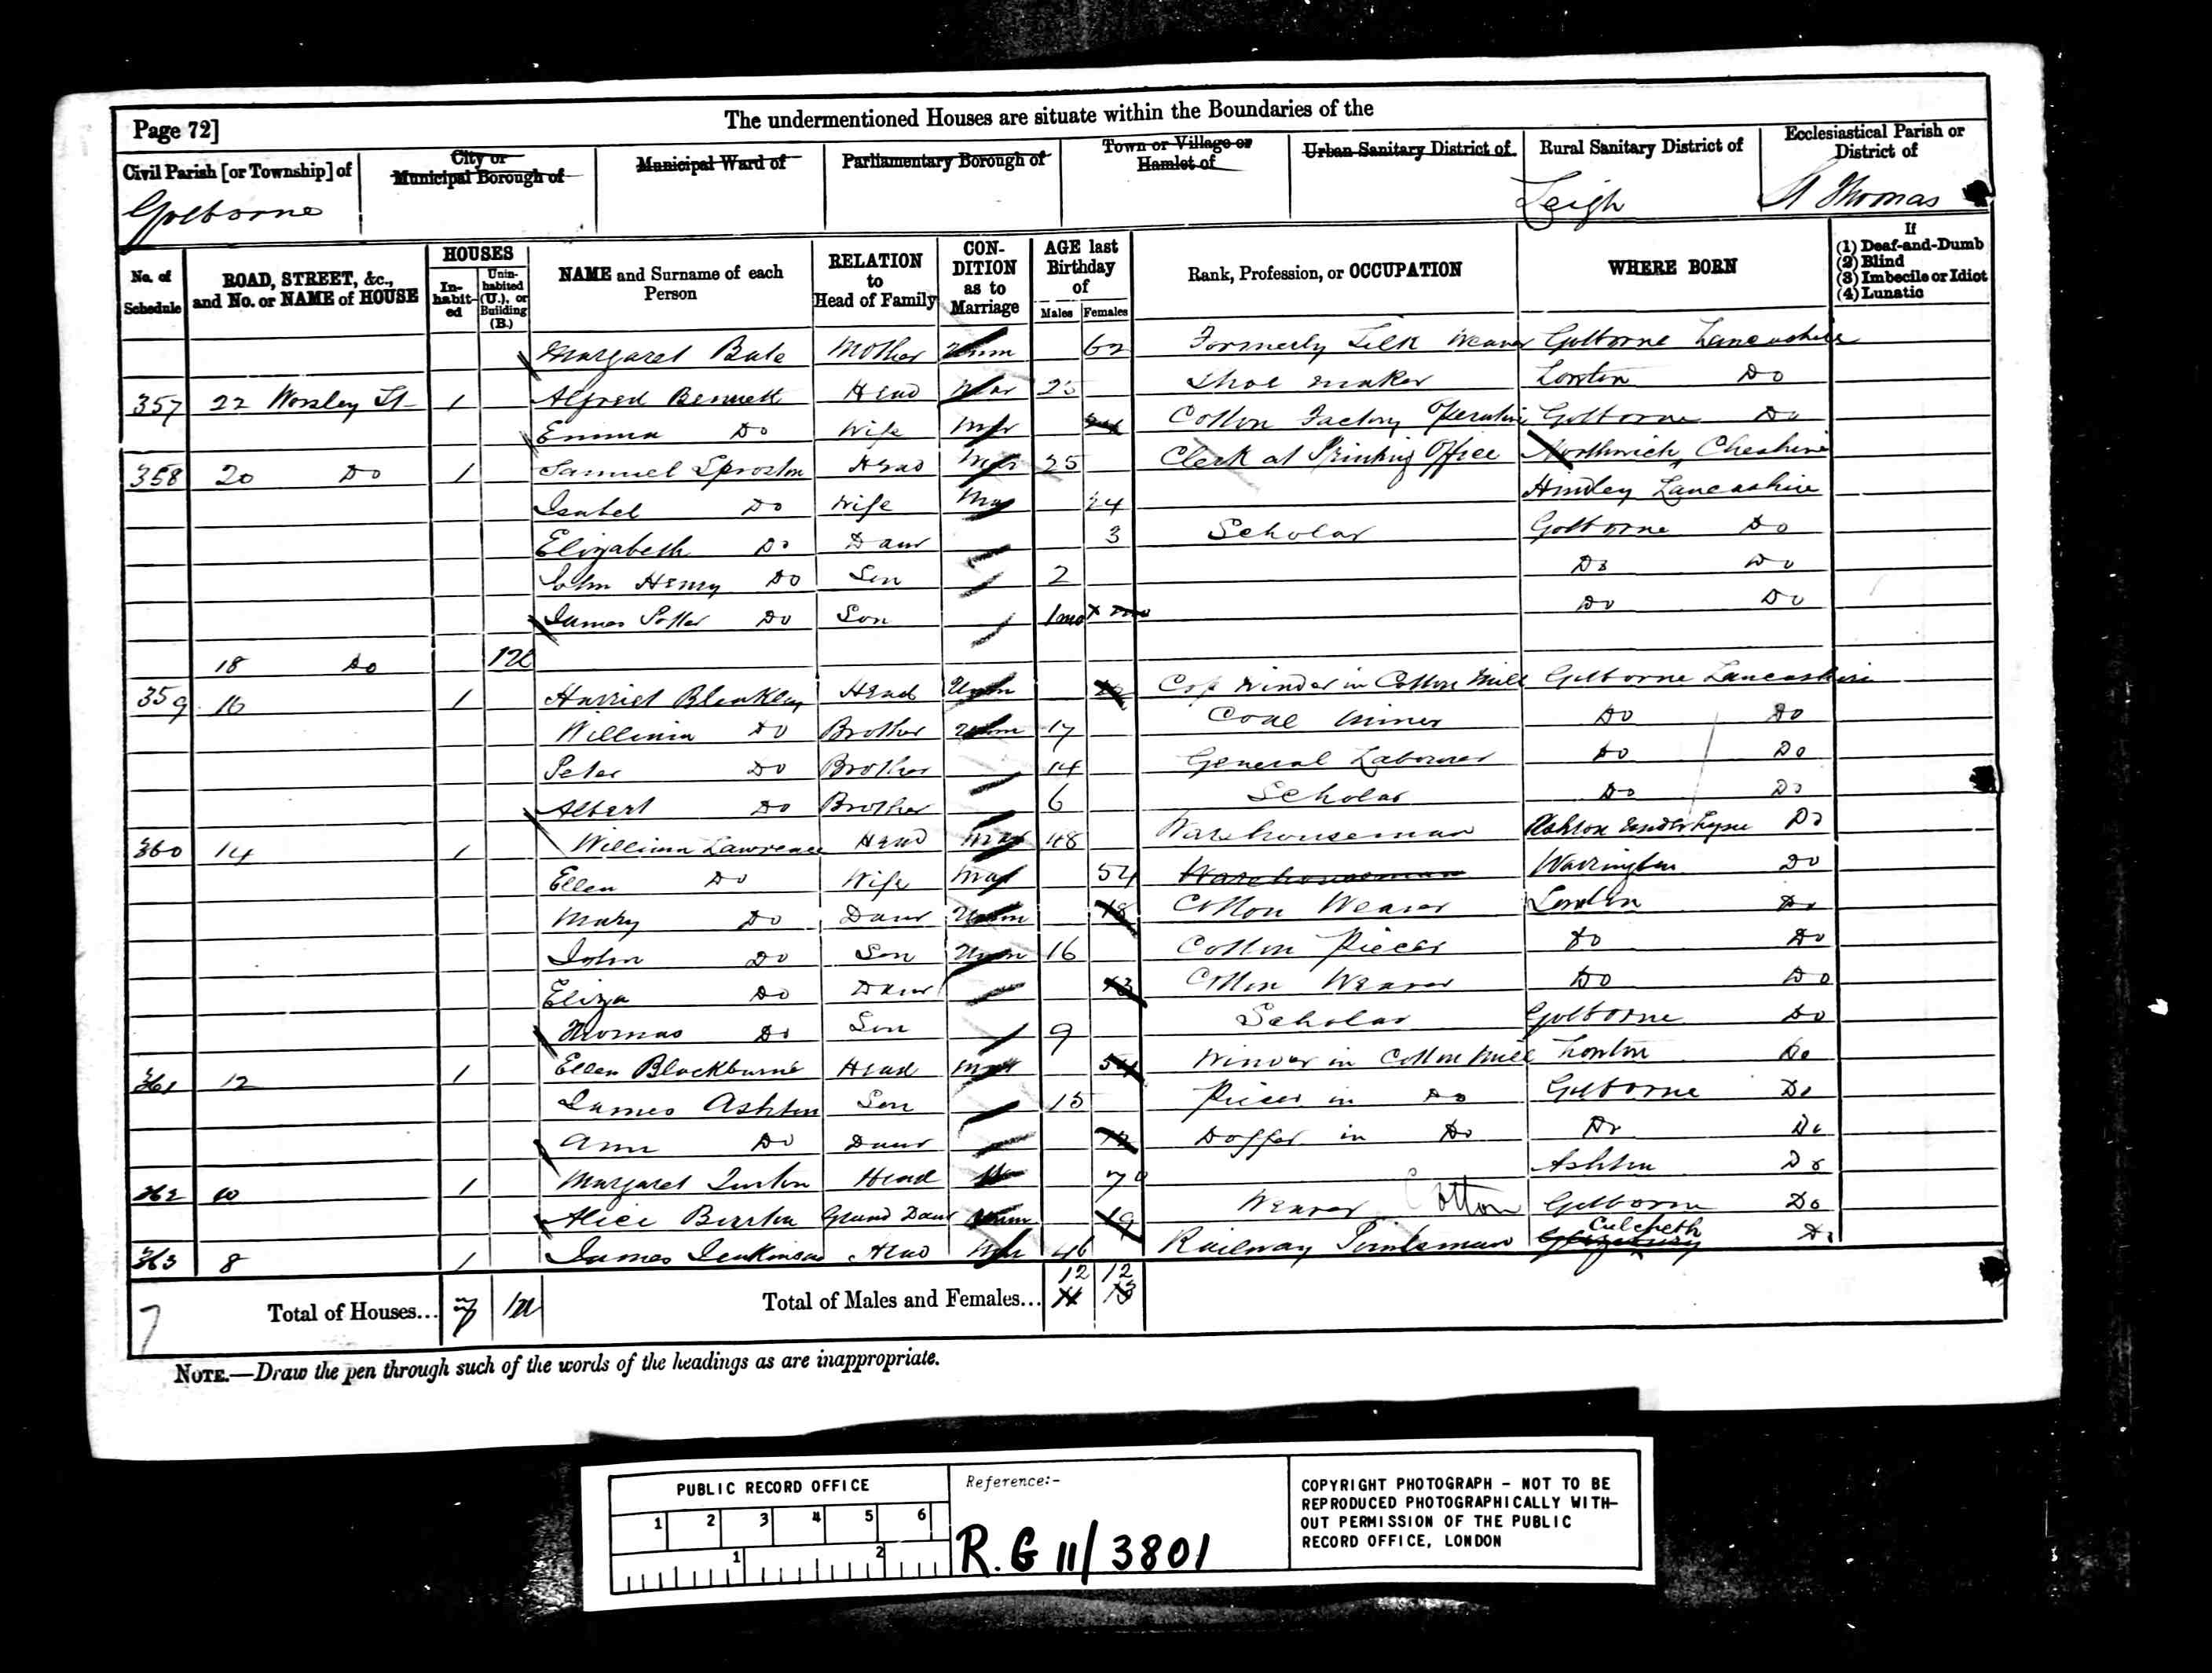 The undermentioned Houses are situate within the Boundaries of the
Page 72]
Civil Parish [or Township] of
City or Municipal Borough of
Municipal Ward of
Parliamentary Borough of
Town or Village or Hamlet of
Urban Sanitary District of
Rural Sanitary District of
Ecclesiastical Parish or District of
Golborne Leigh St Thomas
No. of Schedule
ROAD, STREET, &c., and No. or NAME of HOUSE
HOUSES
In-habit-ed
Unin-habited (U.), or Building (B.)
NAME and Surname of each Person
RELATION to Head of Family
CON-DITION as to Marriage
AGE last Birthday of
Males Females
Rank, Profession, or OCCUPATION
WHERE BORN
If
(1) Deaf-and-Dumb
(2) Blind
(3) Imbecile or Idiot
(4) Lunatic
Margaret Bate Mother 62 Formerly Silk Weaver Golborne Lancashire
357 22 Worsley St 1 Alfred Bennett Head Mar 25 Shoe maker Lowton Do
Emma Do Wife Mar Cotton Factory Operative Golborne Do
358 20 Do 1 Samuel Sproston Head Mar 25 Clerk at Printing Office Northwich Cheshire
Isabel Do Wife Mar 24 Hindley Lancashire
Elizabeth Do Daur 3 Scholar Golborne Do
John Henry Do Son 2 Do Do
James Potter Do Son 1 mo Do Do
18 Do 1 U
359 16 1 Harriet Bleakley Head Unm Cop Winder in Cotton Mill Golborne Lancashire
William Do Brother Unm 17 Coal Miner Do Do
Peter Do Brother 14 General Labourer Do Do
Albert Do Brother 6 Scholar Do Do
360 14 1 William Lawrence Head Mar 48 Warehouseman Ashton under Lyne Do
Ellen Do Wife Mar 54 Warehouseman Warrington Do
Mary Do Daur Unm 18 Cotton Weaver Lowton Do
John Do Son Unm 16 Cotton Piecer Do Do
Eliza Do Daur 13 Cotton Weaver Do Do
Thomas Do Son 9 Scholar Golborne Do
361 12 1 Ellen Blackburne Head 54 Winder in Cotton Mill Lowton Do
James Ashton Son 15 Piecer in Do Golborne Do
Ann Do Daur 12 Doffer in Do Do Do
362 10 1 Margaret Turton Head W 70 Ashton Do
Alice Burton Grand Daur Unm 19 Weaver Cotton Golborne Do
363 8 1 James Jenkinson Head Mar 46 Railway Pointsman Culcheth Do
12 12
7 Total of Houses... 7 1 U Total of Males and Females... 11 13
NOTE.—Draw the pen through such of the words of the headings as are inappropriate.
PUBLIC RECORD OFFICE
1 2 3 4 5 6
1 2
Reference:-
R.G 11/3801
COPYRIGHT PHOTOGRAPH - NOT TO BE
REPRODUCED PHOTOGRAPHICALLY WITH-
OUT PERMISSION OF THE PUBLIC
RECORD OFFICE, LONDON